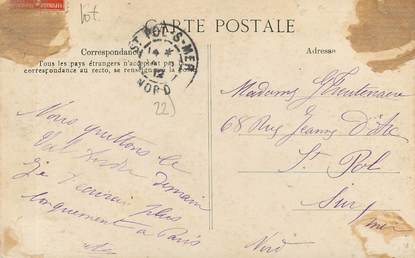 Lot.
CARTE POSTALE
Correspondance
Adresse
Tous les pays étrangers n'acceptent pas
correspondance au recto, se renseigner à la
ST POL-S-MER
14
12
NORD
22
Nous quittons le
Val demain
je t'écrirai plus
longuement à Paris
Madame
68 Rue Jeanne d'Arc
St Pol
Sur
mer
Nord